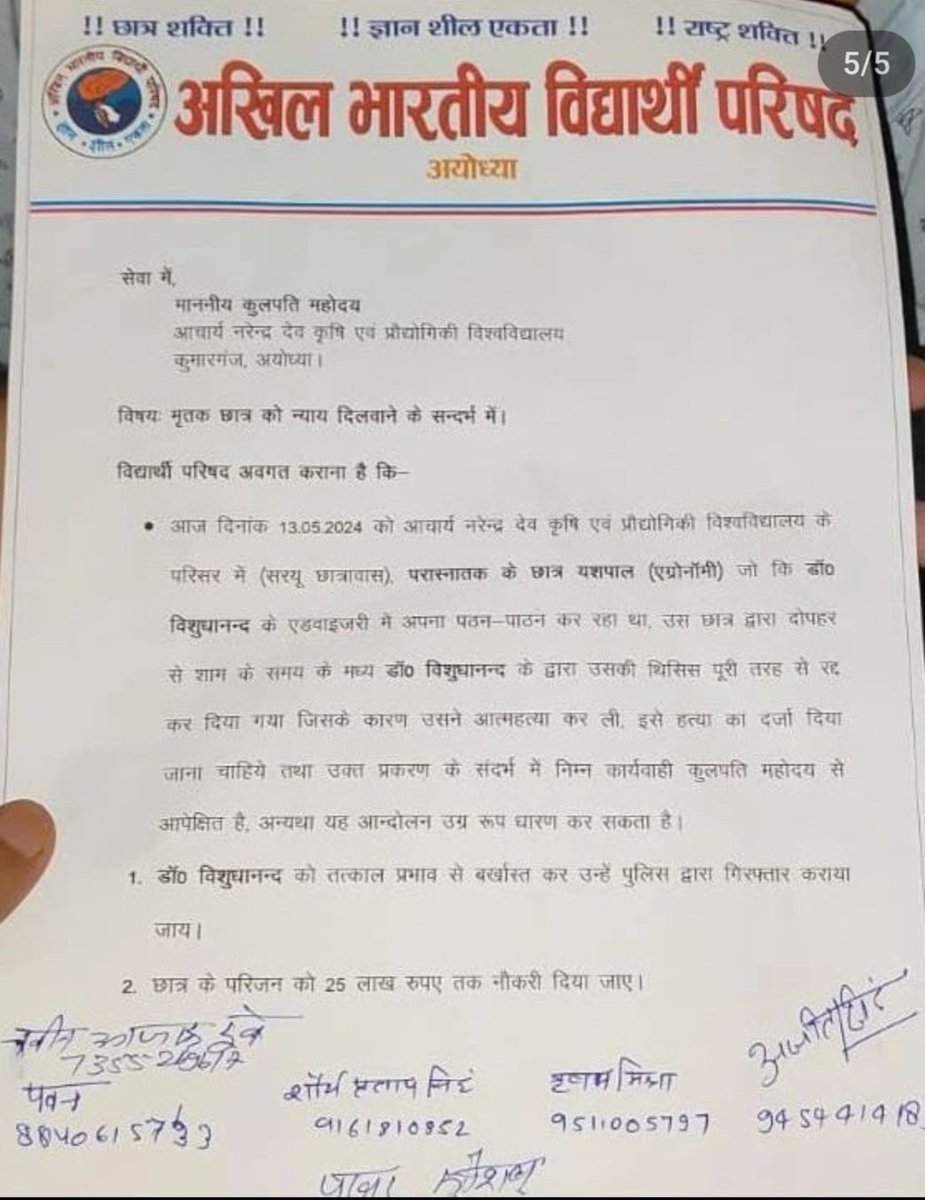 !! छात्र शक्ति !! !! ज्ञान शील एकता !! !! राष्ट्र शक्ति !!
5/5
अखिल भारतीय विद्यार्थी परिषद
अयोध्या
सेवा में,
माननीय कुलपति महोदय
आचार्य नरेन्द्र देव कृषि एवं प्रौद्योगिकी विश्वविद्यालय
कुमारगंज, अयोध्या।
विषयः मृतक छात्र को न्याय दिलवाने के सन्दर्भ में।
विद्यार्थी परिषद अवगत कराना है कि–
• आज दिनांक 13.05.2024 को आचार्य नरेन्द्र देव कृषि एवं प्रौद्योगिकी विश्वविद्यालय के
परिसर में (सरयू छात्रावास), परास्नातक के छात्र यशपाल (एग्रोनॉमी) जो कि डॉ0
विशुधानन्द के एडवाइजरी मे अपना पठन–पाठन कर रहा था, उस छात्र द्वारा दोपहर
से शाम के समय के मध्य डॉ0 विशुधानन्द के द्वारा उसकी थिसिस पूरी तरह से रद्द
कर दिया गया जिसके कारण उसने आत्महत्या कर ली, इसे हत्या का दर्जा दिया
जाना चाहिये तथा उक्त प्रकरण के संदर्भ में निम्न कार्यवाही कुलपति महोदय से
आपेक्षित है, अन्यथा यह आन्दोलन उग्र रूप धारण कर सकता है।
1. डॉ0 विशुधानन्द को तत्काल प्रभाव से बर्खास्त कर उन्हें पुलिस द्वारा गिरफ्तार कराया
जाय।
2. छात्र के परिजन को 25 लाख रुपए तक नौकरी दिया जाए।
पवन शौर्य प्रताप सिंह मिश्रा
9161810852 9511005797 945441418